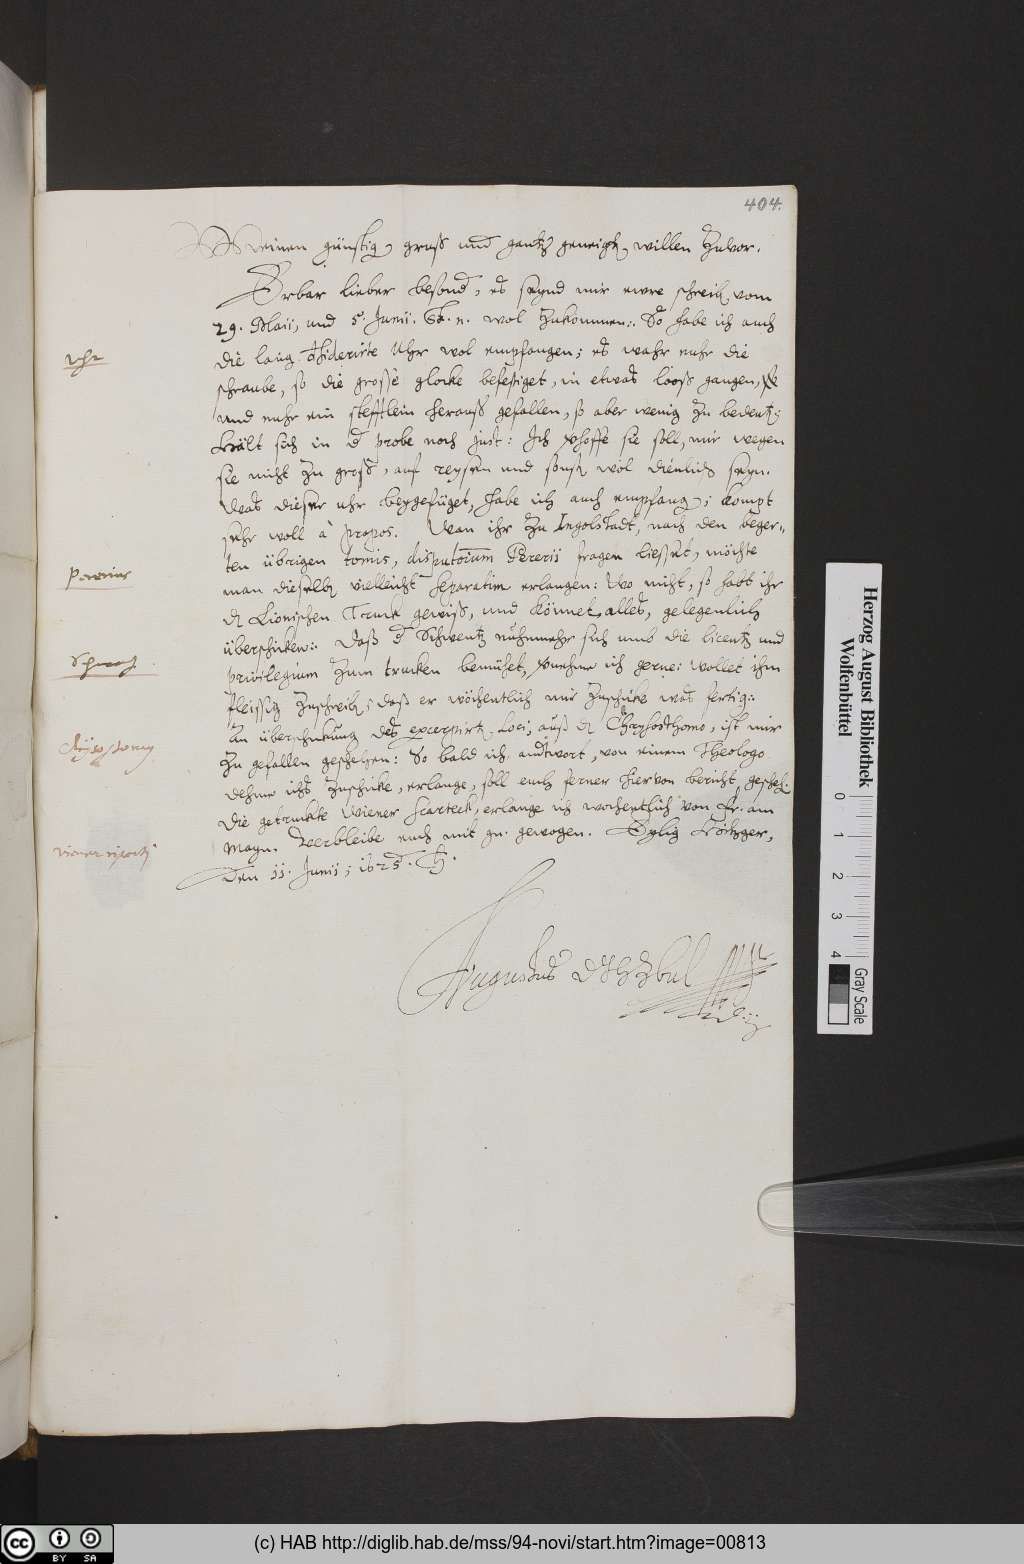 404.
Meinen günstig gruß und gantz geneigt willen zuvor.
Erbar lieber besond, es seynd mir ewre schreib vom
29. Maii, und 5. Junii. St. n. wol zukommen:. So habe ich auch
die lang Uhr wol empfangen; es wahr nuhr die
schraube, so die große glocke befestiget, in etwas looß gangen,
und nuhr ein stefftlein herauß gefallen, so aber wenig zu bedeut;
hält sich in d probe noch just: Ich vhoffe sie soll, mir wegen
sie nicht zu groß, auf reysen und sonst wol dienlich seyn.
Was dieser uhr beygefüget, habe ich auch empfang; kompt
sehr woll à propos. Wan ihr zu Ingolstadt, nach den beger-
ten übrigen tomis, disputationum Pererii fragen ließet, möchte
man dieselb vielleicht separatim erlangen: Wo nicht, so habt ihr
d Lionischen Truck gewiß, und könnet alles, gelegenlich
überschicken:. Daß d Schwentz nuhnmehr sich umb die licentz und
privilegium zum trucken bemühet, vnehme ich gerne: wollet ihm
fleissig zuschreib; daß er wöchentlich mir zuschicke was fertig:.
An überschickung des excerpirt Loci, auß d Chrysosthomo, ist mir
zu gefallen geschehen: So bald ich antwort, von einem Theologo
dehme ichs zuschicke, erlange, soll euch ferner hiervon bericht gescheh:
Die getruckte Wiener scarteck, erlange ich wochentlich von Fr. am
Mayn. Verbleibe euch mit gn. gewogen. Eylig Hitzger,
Den 11. Junii; 1625.
Augustus
Uhr
Pererius
Schwent
Chrysostomus
Wiener scarteck